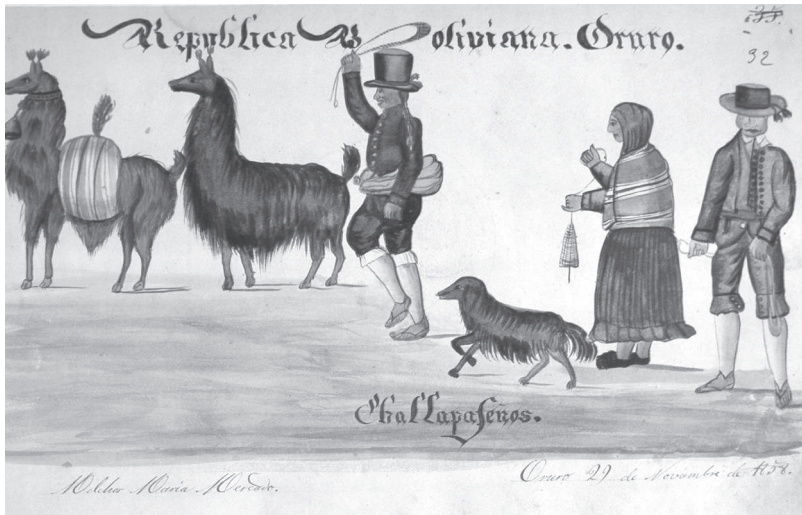 Republica Boliviana. Oruro.
32
Challapaseños.
Melchor Maria Mercado.
Oruro 29 de Noviembre de 1858.